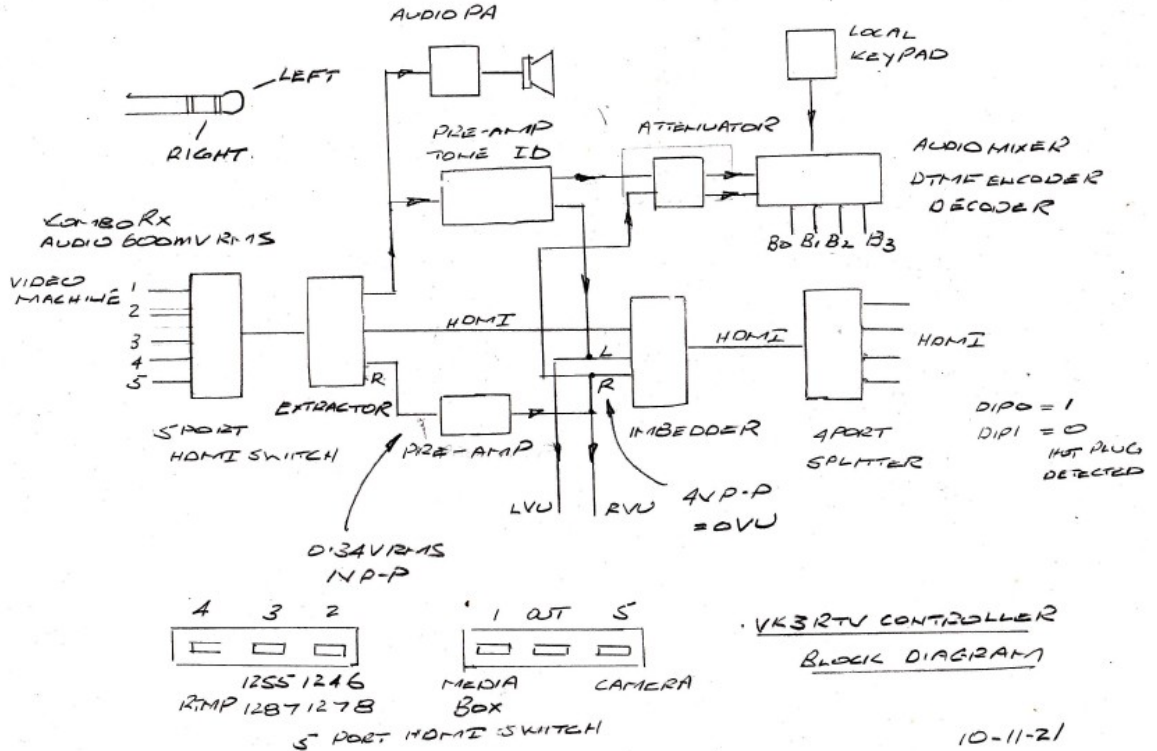 AUDIO PA
LEFT
RIGHT.
LOCAL
KEYPAD
PRE-AMP
TONE ID
ATTENUATOR
AUDIO MIXER
DTMF ENCODER
DECODER
B0 B1 B2 B3
KOMBO RX
AUDIO 600MV RMS
VIDEO
MACHINE
1
2
3
4
5
5 PORT
HDMI SWITCH
EXTRACTOR
R
HDMI
PRE-AMP
L
R
IMBEDDER
HDMI
4 PORT
SPLITTER
HDMI
DIP0 = 1
DIP1 = 0
HOT PLUG
DETECTED
LVU
RVU
4V P-P
= 0VU
0.34V RMS
1V P-P
4 3 2
1255 1246
RPMP 1287 1278
1 OUT 5
MEDIA
BOX
CAMERA
5 PORT HDMI SWITCH
VK3RTV CONTROLLER
BLOCK DIAGRAM
10-11-21